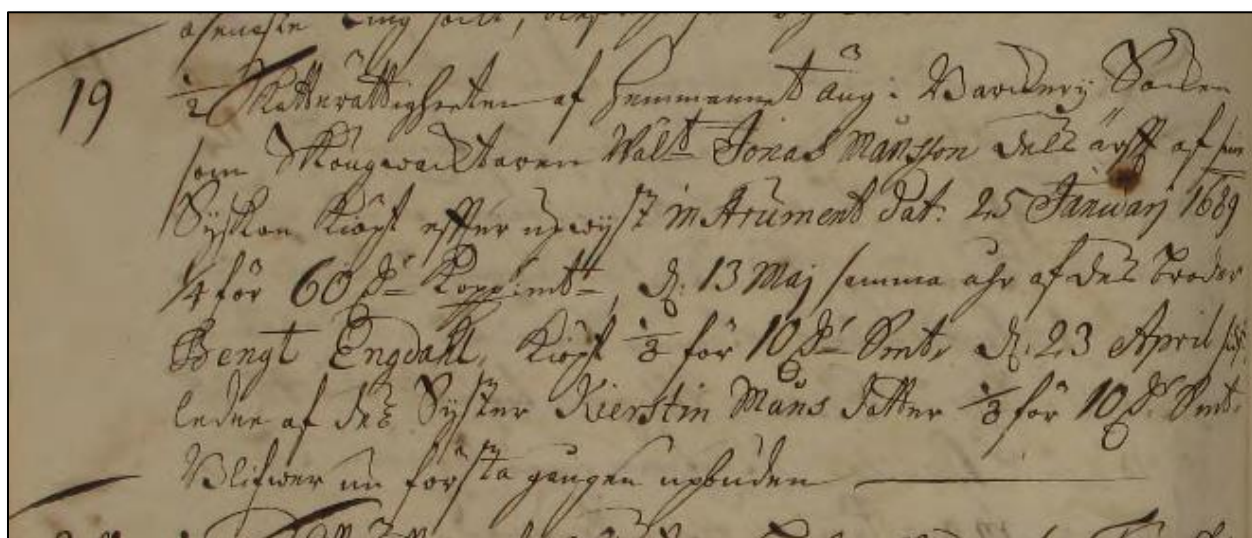 19
1/2 Skatterättigheeten af hemmannet Äng: Barkery Socken
som Skougwacktaren Wält Jonas Månsson dels ärfft af sine
Syskon Kiöpt efter upwyst instrument Dat: 25 Januarj 1689
1/4 för 60 dr Kopp:mt d. 13 Maj samma åhr af des broder
Bengt Engdahl Kiöpt 1/8 för 10 dr Smt, d. 23 April
leden af des Syster Kierstin Måns dotter 1/8 för 10 dr Smt.
Blifwer nu första gången upbuden